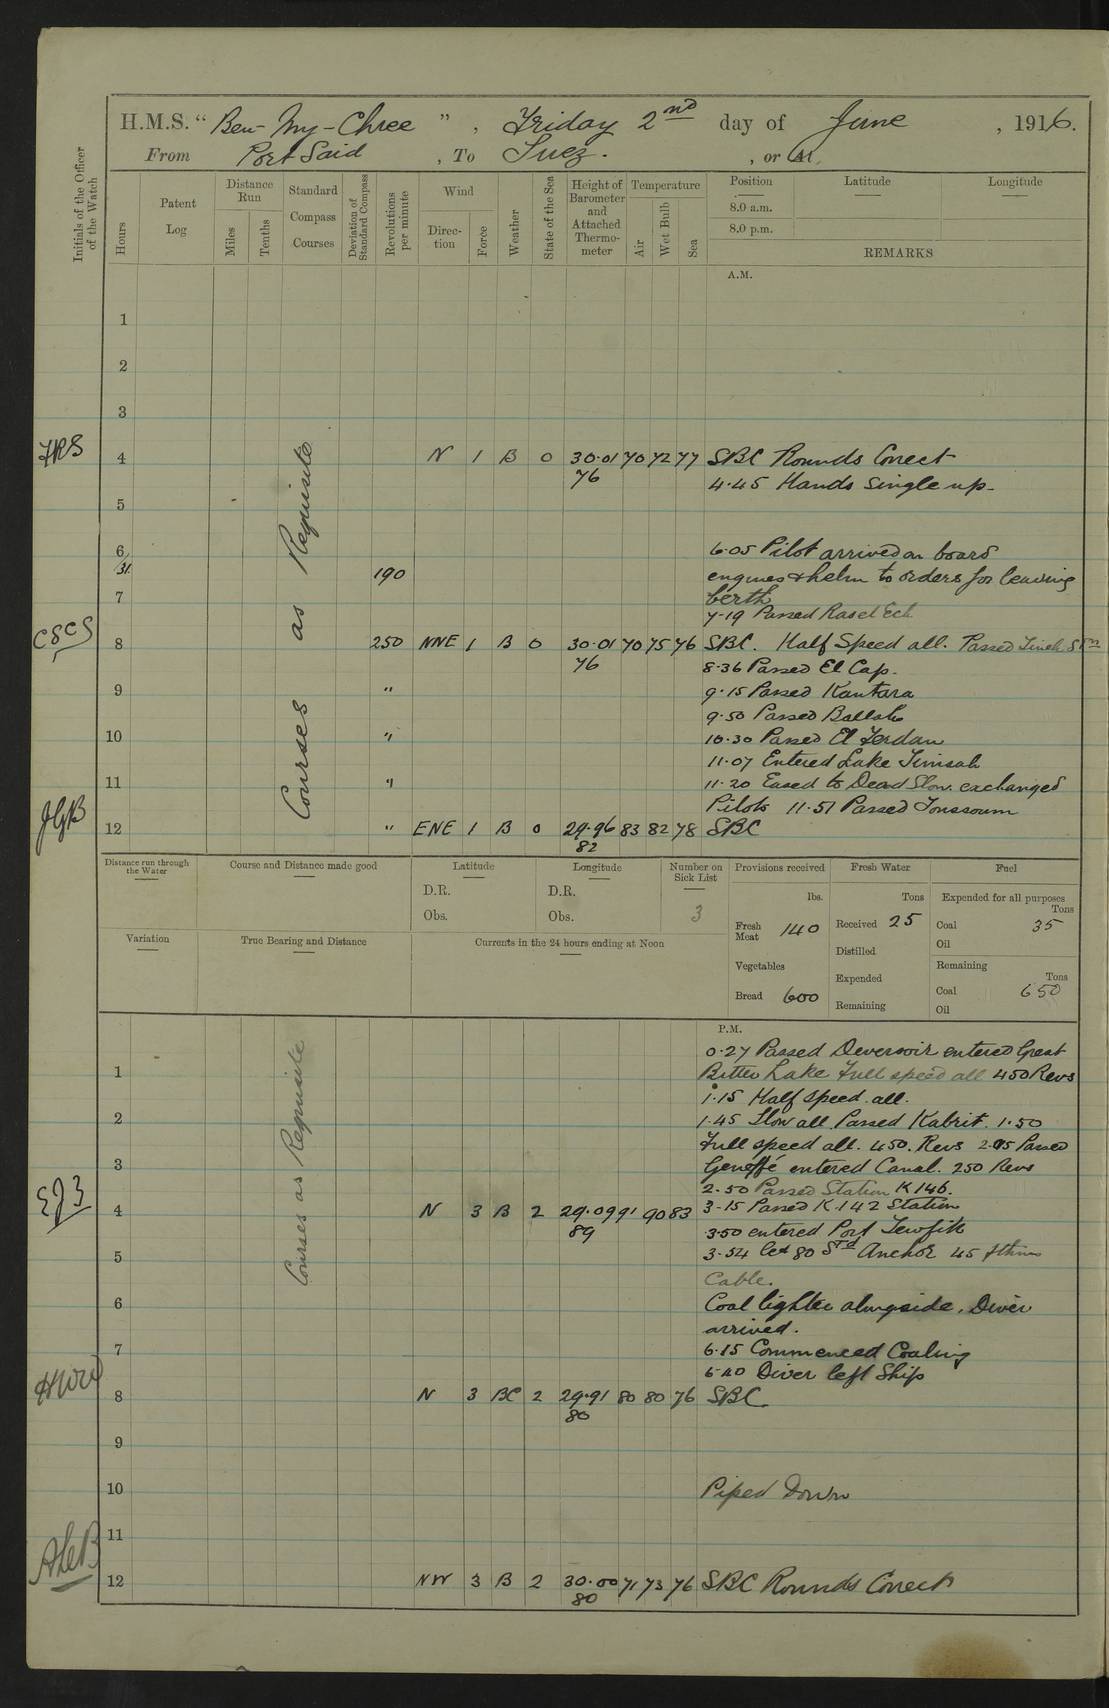 H.M.S. " Ben-My-Chree " , Friday 2nd day of June , 1916.
From Port Said , To Suez. , or At
Initials of the Officer of the Watch
Hours
Patent Log
Distance Run
Miles
Tenths
Standard Compass Courses
Deviation of Standard Compass
Revolutions per minute
Wind
Direction
Force
Weather
State of the Sea
Height of Barometer and Attached Thermometer
Temperature
Air
Wet Bulb
Sea
Position Latitude Longitude
8.0 a.m.
8.0 p.m.
REMARKS
A.M.
Courses as Requisite
1
2
3
4 N 1 B 0 30.01 70 72 77 SBC Rounds Correct
76 4.45 Hands Single up-
5
6 6.05 Pilot arrived on board
31 190 engines & helm to orders for leaving
7 berth
7-19 Passed Rasel Ech
CSCS 8 250 NNE 1 B 0 30.01 70 75 76 SBC. Half Speed all. Passed Tineh Stn
76 8.36 Passed El Cap.
9 " 9.15 Passed Kantara
9.50 Passed Ballah
10 " 10.30 Passed El Ferdan
11.07 Entered Lake Timsah
11 " 11.20 Eased to Dead Slow. exchanged
JGB Pilots 11.51 Passed Toussoum
12 " ENE 1 B 0 29.96 83 82 78 SBC
82
Distance run through the Water
Course and Distance made good
Latitude
D.R.
Obs.
Longitude
D.R.
Obs.
Number on Sick List
3
Provisions received
lbs.
Fresh Meat 140
Vegetables
Bread 600
Fresh Water
Tons
Received 25
Distilled
Expended
Remaining
Fuel
Expended for all purposes
Tons
Coal 35
Oil
Remaining
Tons
Coal 650
Oil
Variation
True Bearing and Distance
Currents in the 24 hours ending at Noon
P.M.
Courses as Requisite
0.27 Passed Deversoir entered Great
1 Bitter Lake Full speed all 450 Revs
1.15 Half speed all.
2 1.45 Slow all Passed Kabrit. 1.50
Full speed all. 450. Revs 2.05 Passed
3 Geneffé entered Canal. 250 Revs
2.50 Passed Station K 146.
4 N 3 B 2 29.09 91 90 83 3-15 Passed K.142 Station
89 3.50 entered Port Tewfik
5 3.54 let go Std Anchor 45 fthms
Cable.
6 Coal lighter alongside. Diver
arrived.
7 6.15 Commenced Coaling
6.40 Diver left Ship
8 N 3 BC 2 29.91 80 80 76 SBC
80
9
10 Piped Down
11
12 NW 3 B 2 30.00 71 73 76 SBC Rounds Correct
80